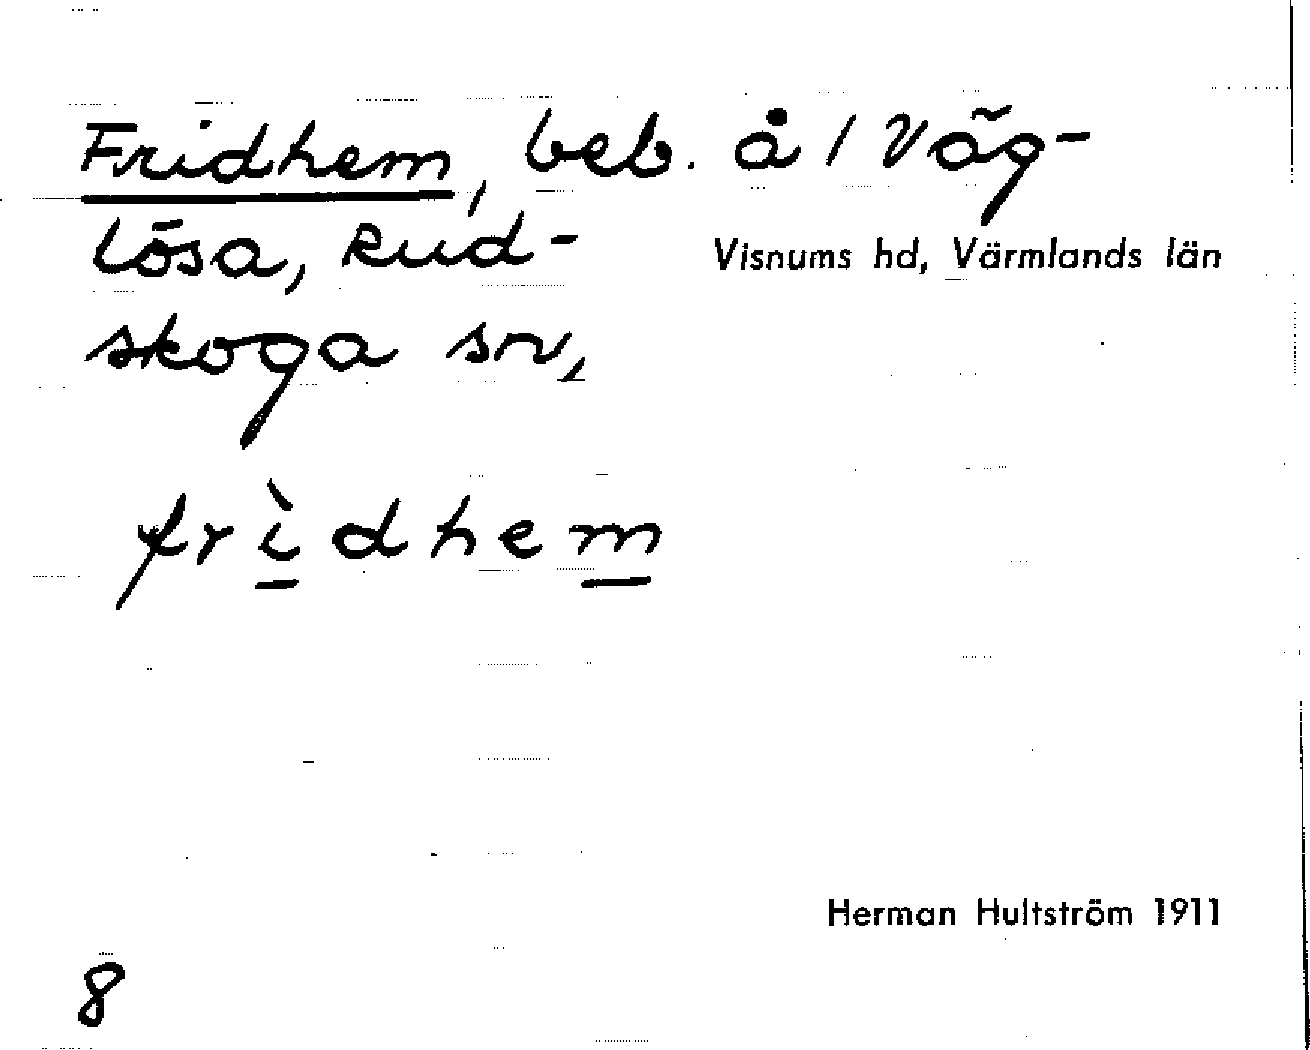 Fridhem, beb. å 1 Väg-
lösa, Rud-
skoga sn,
Visnums hd, Värmlands län
frìdhem
Herman Hultström 1911
8